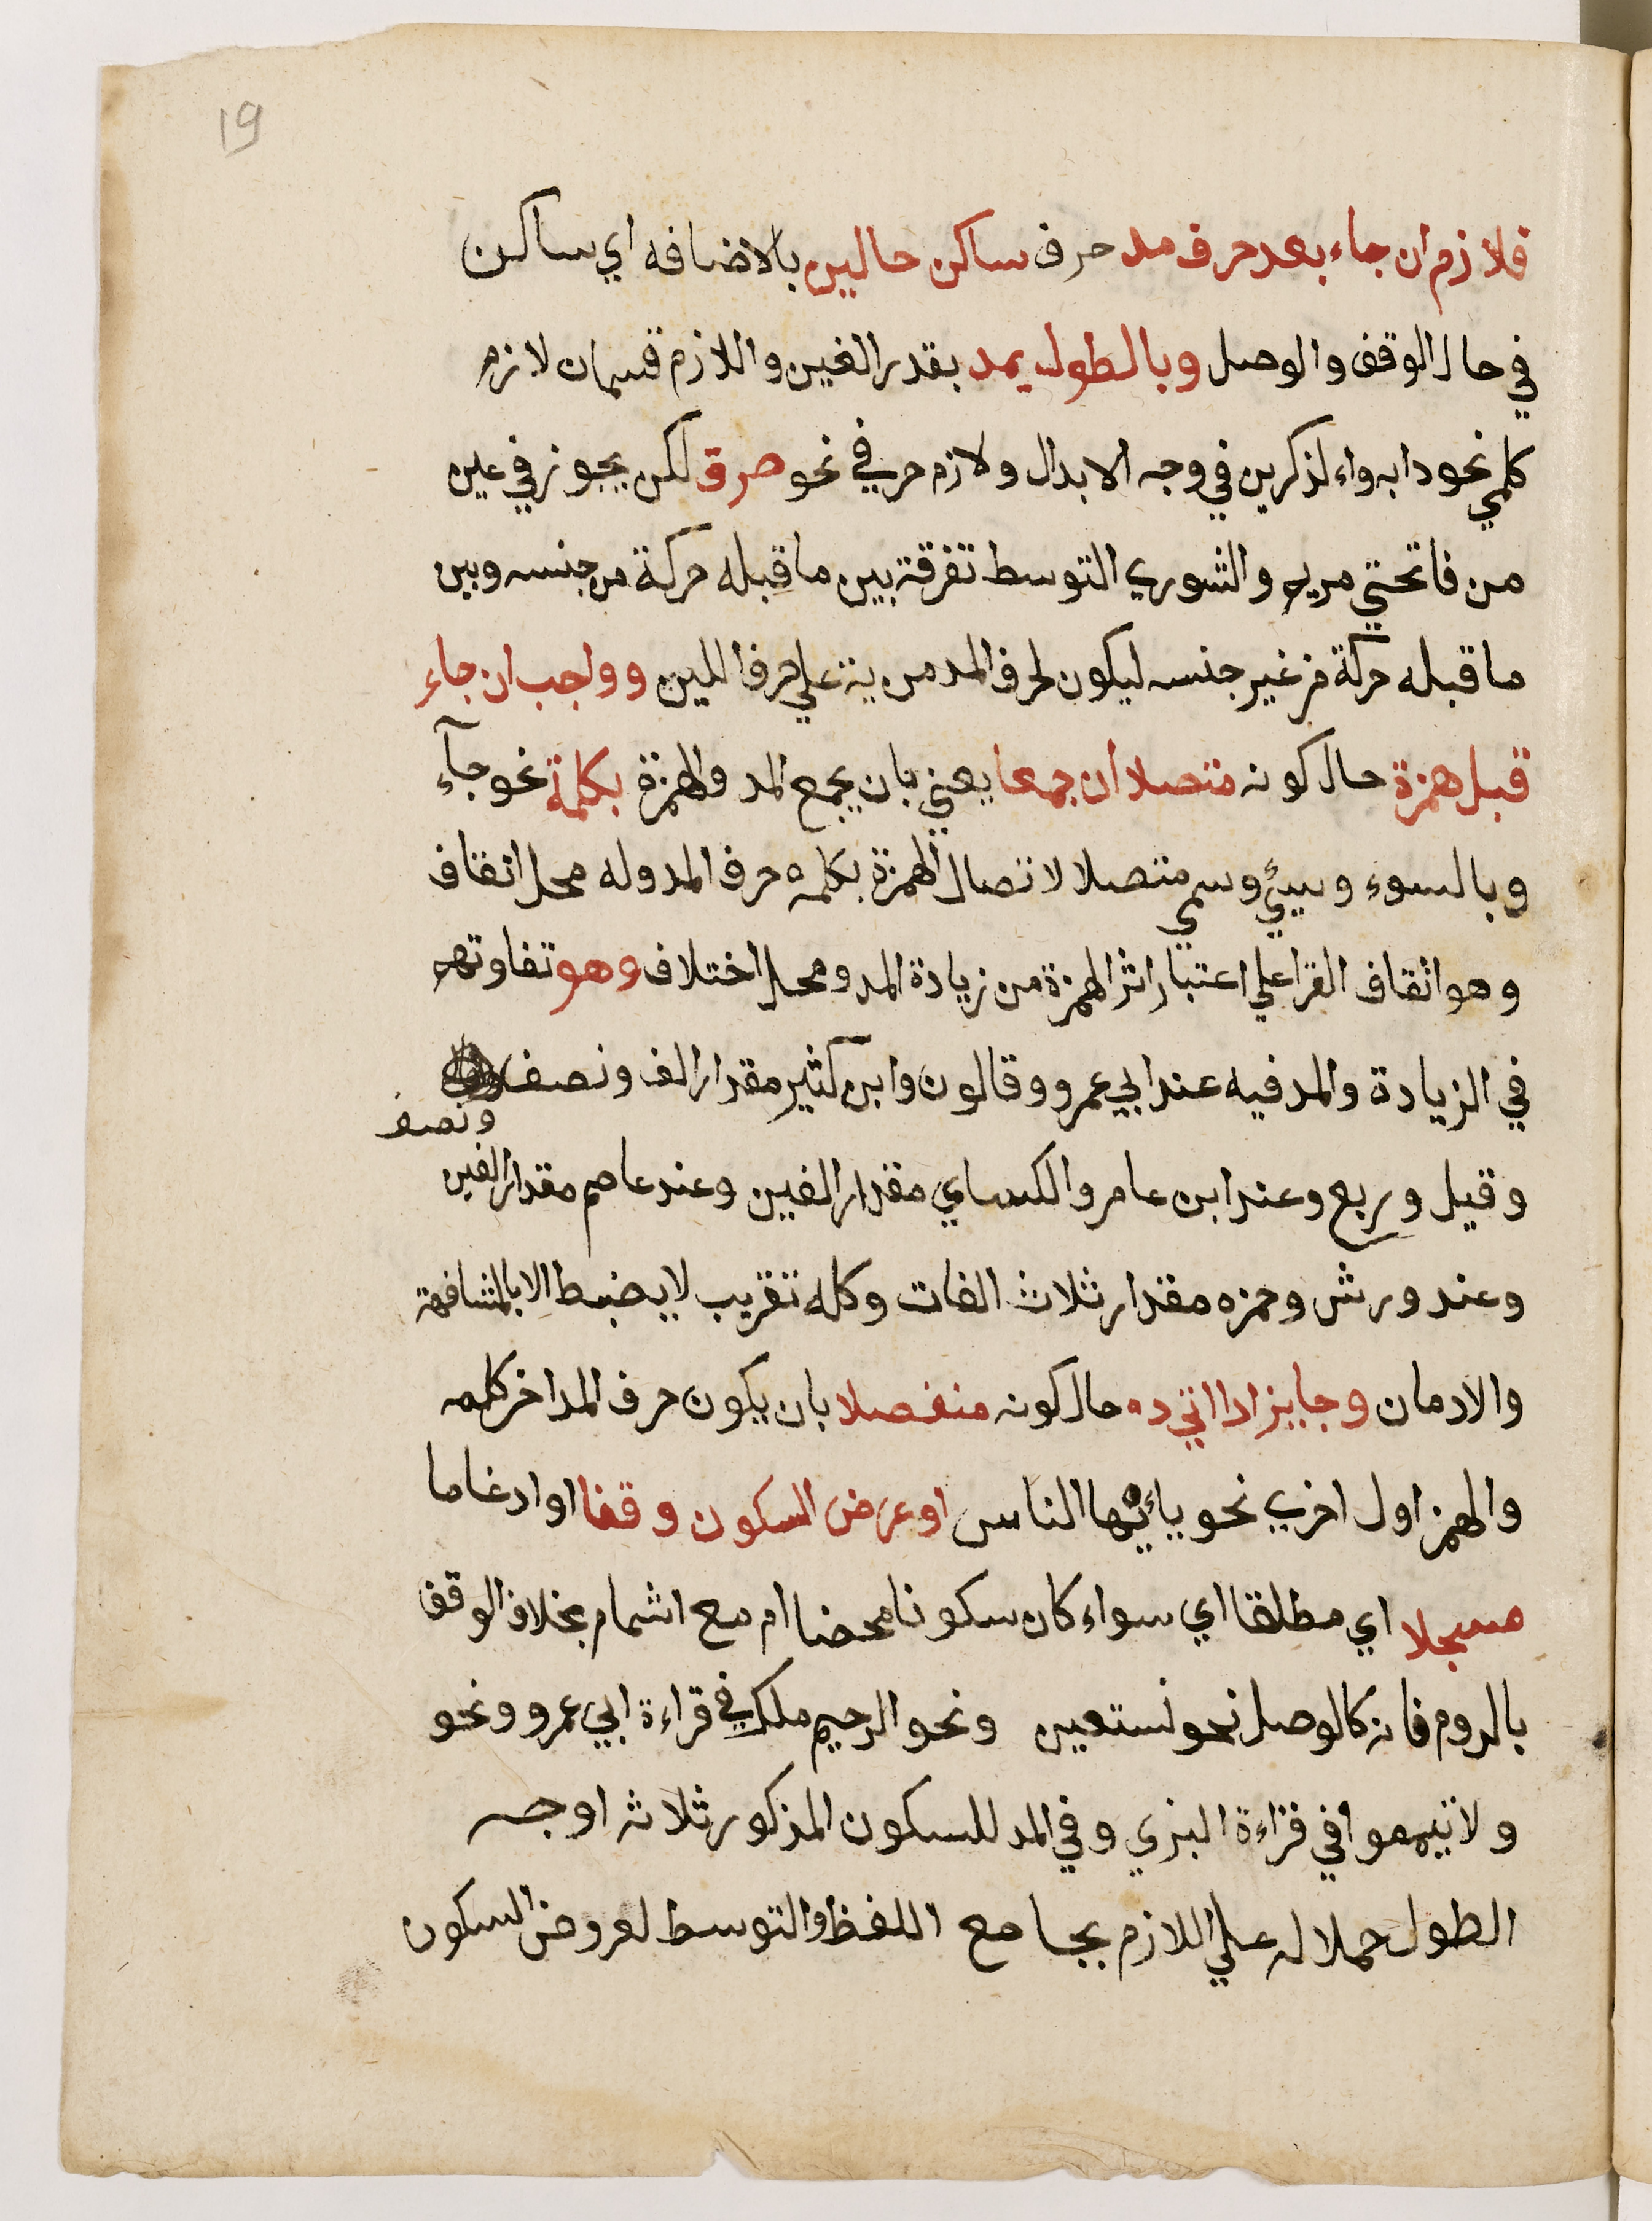 19
فلازم ان جاء بعد حرف مد حرف ساكن حالين بالاضافه اي ساكن
في حال الوقف والوصل وبالطول يمد بقدر الفين واللازم قسمان لازم
كلمي نحو دابه واءلذكرين في وجه الابدال ولازم حرفي نحو ص ق لكن يجوز في عين
من فاتحتي مريم والشوري التوسط تفرقة بين ما قبله حركة من جنسه وبين
ما قبله حركة من غير جنسه ليكون لحرف المد مزية علي حرفا اللين وواجب ان جاء
قبل همزة حال كونه متصلا ان جمعا يعني بان يجمع المد والهمزة بكلمة نحو جآء
وبالسوء وسيئ وسمي متصلا لاتصال الهمزة بكلمه حرف المد وله محل اتقاف
وهو اتقاف القرا علي اعتبار اثر الهمزة من زيادة المد ومحل اختلاف وهو تفاوتهم
في الزيادة والمد فيه عند ابي عمرو وقالون وابن كثير مقدار الف ونصف
ونصف
وقيل وربع وعند ابن عامر والكساي مقدار الفين وعند عاصم مقدار الفين
وعند ورش وحمزه مقدار ثلاث الفات وكله تقريب لا يضبط الا بالمشافهة
والادمان وجايز ادا اتي ده حال كونه منفصلا بان يكون حرف المد اخر كلمه
والهمز اول اخري نحو يائها الناس او عرض السكون وقفا او ادغاما
مسجلا اي مطلقا اي سواء كان سكونا محضا ام مع اشمام بخلاف الوقف
بالروم فانه كالوصل نحو نستعين ونحو الرحيم ملك في قراءة ابي عمرو ونحو
ولا تيمموا في قراءة البزي وفي المد للسكون المذكور ثلاثه اوجه
الطول حملا له علي اللازم بجامع اللفظ والتوسط لعروض السكون